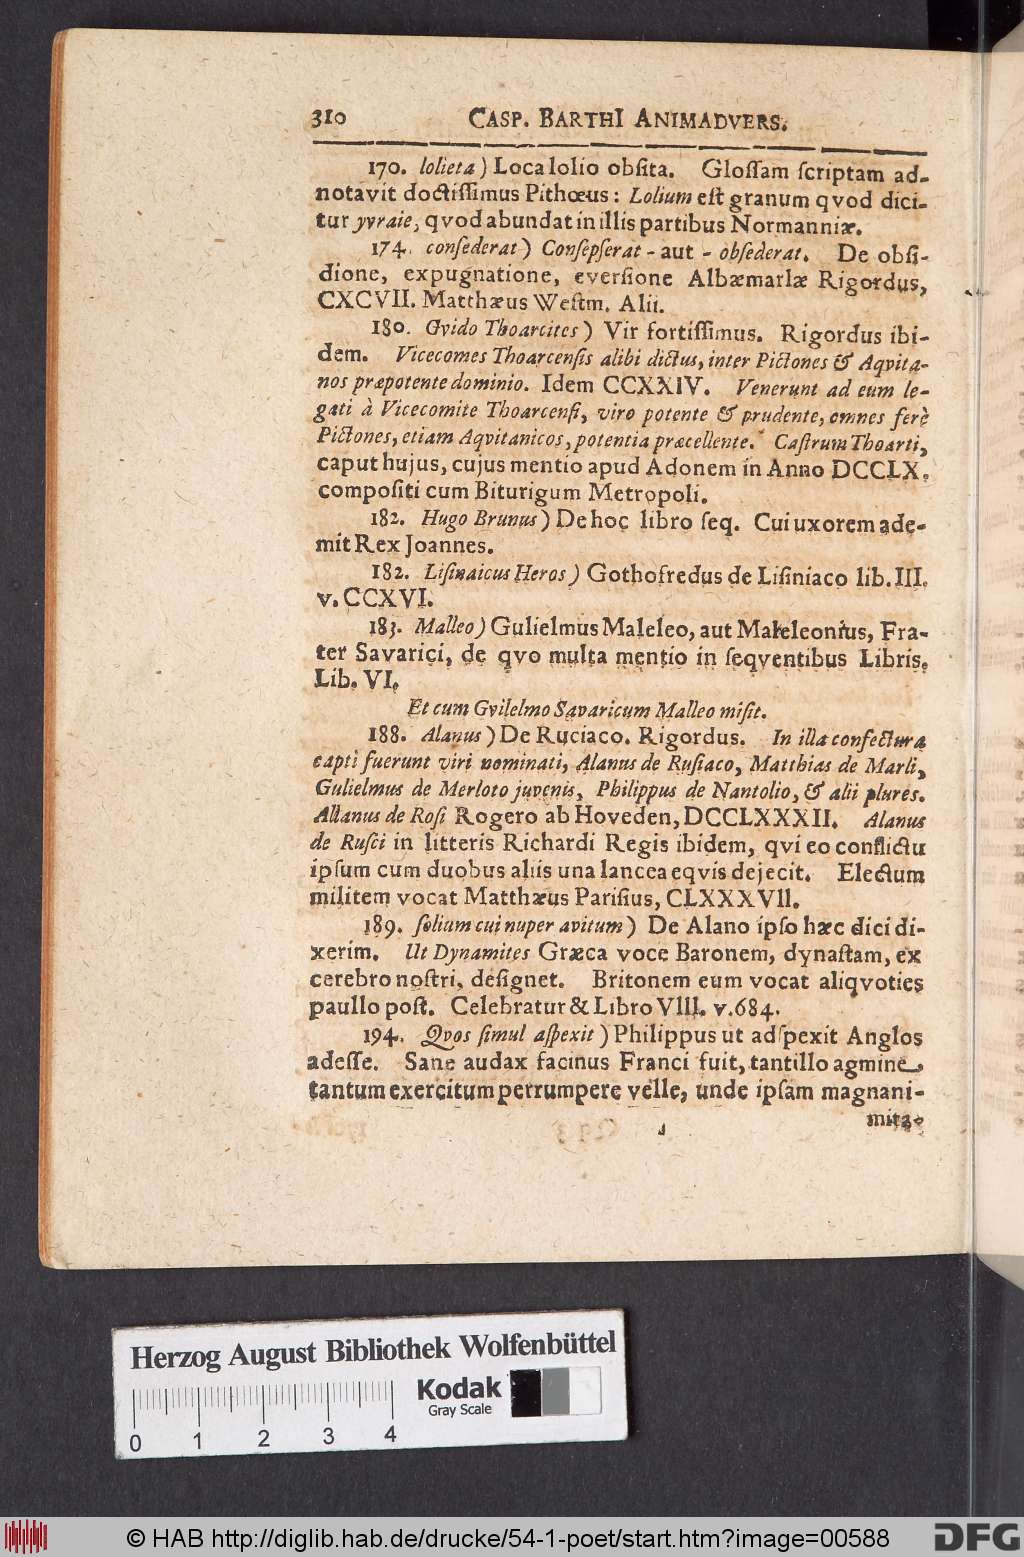 310 CASP. BARTHI ANIMADVERS.
170. lolieta) Loca lolio obſita. Gloſſam ſcriptam ad-
notavit doctiſſimus Pithœus: Lolium eſt granum qvod dici-
tur yvraie, qvod abundat in illis partibus Normanniæ.
174. conſederat) Conſepſerat - aut - obſederat. De obſi-
dione, expugnatione, everſione Albæmarlæ Rigordus,
CXCVII. Matthæus Weſtm. Alii.
180. Gvido Thoarcites) Vir fortiſſimus. Rigordus ibi-
dem. Vicecomes Thoarcenſis alibi dictus, inter Pictones & Aqvita-
nos præpotente dominio. Idem CCXXIV. Venerunt ad eum le-
gati à Vicecomite Thoarcenſi, viro potente & prudente, omnes ferè
Pictones, etiam Aqvitanicos, potentia præcellente. Caſtrum Thoarti,
caput hujus, cujus mentio apud Adonem in Anno DCCLX.
compoſiti cum Biturigum Metropoli.
182. Hugo Brunus) De hoc libro ſeq. Cui uxorem ade-
mit Rex Joannes.
182. Liſinaicus Heros) Gothofredus de Liſiniaco lib. III.
v. CCXVI.
183. Malleo) Gulielmus Maleleo, aut Maleleonius, Fra-
ter Savarici, de qvo multa mentio in ſeqventibus Libris.
Lib. VI.
Et cum Gvilelmo Savaricum Malleo miſit.
188. Alanus) De Ruciaco. Rigordus. In illa confectura
capti fuerunt viri nominati, Alanus de Ruſiaco, Matthias de Marli,
Gulielmus de Merloto juvenis, Philippus de Nantolio, & alii plures.
Allanus de Roſi Rogero ab Hoveden, DCCLXXXII. Alanus
de Ruſci in litteris Richardi Regis ibidem, qvi eo conflictu
ipſum cum duobus aliis una lancea eqvis dejecit. Electum
militem vocat Matthæus Pariſius, CLXXXVII.
189. ſolium cui nuper avitum) De Alano ipſo hæc dici di-
xerim. Ut Dynamites Græca voce Baronem, dynaſtam, ex
cerebro noſtri, deſignet. Britonem eum vocat aliqvoties
paullo poſt. Celebratur & Libro VIII. v. 684.
194. Qvos ſimul aſpexit) Philippus ut adſpexit Anglos
adeſſe. Sane audax facinus Franci fuit, tantillo agmine,
tantum exercitum perrumpere velle, unde ipſam magnani-
mita-
Herzog August Bibliothek Wolfenbüttel
Kodak
Gray Scale
0 1 2 3 4
© HAB http://diglib.hab.de/drucke/54-1-poet/start.htm?image=00588
DFG